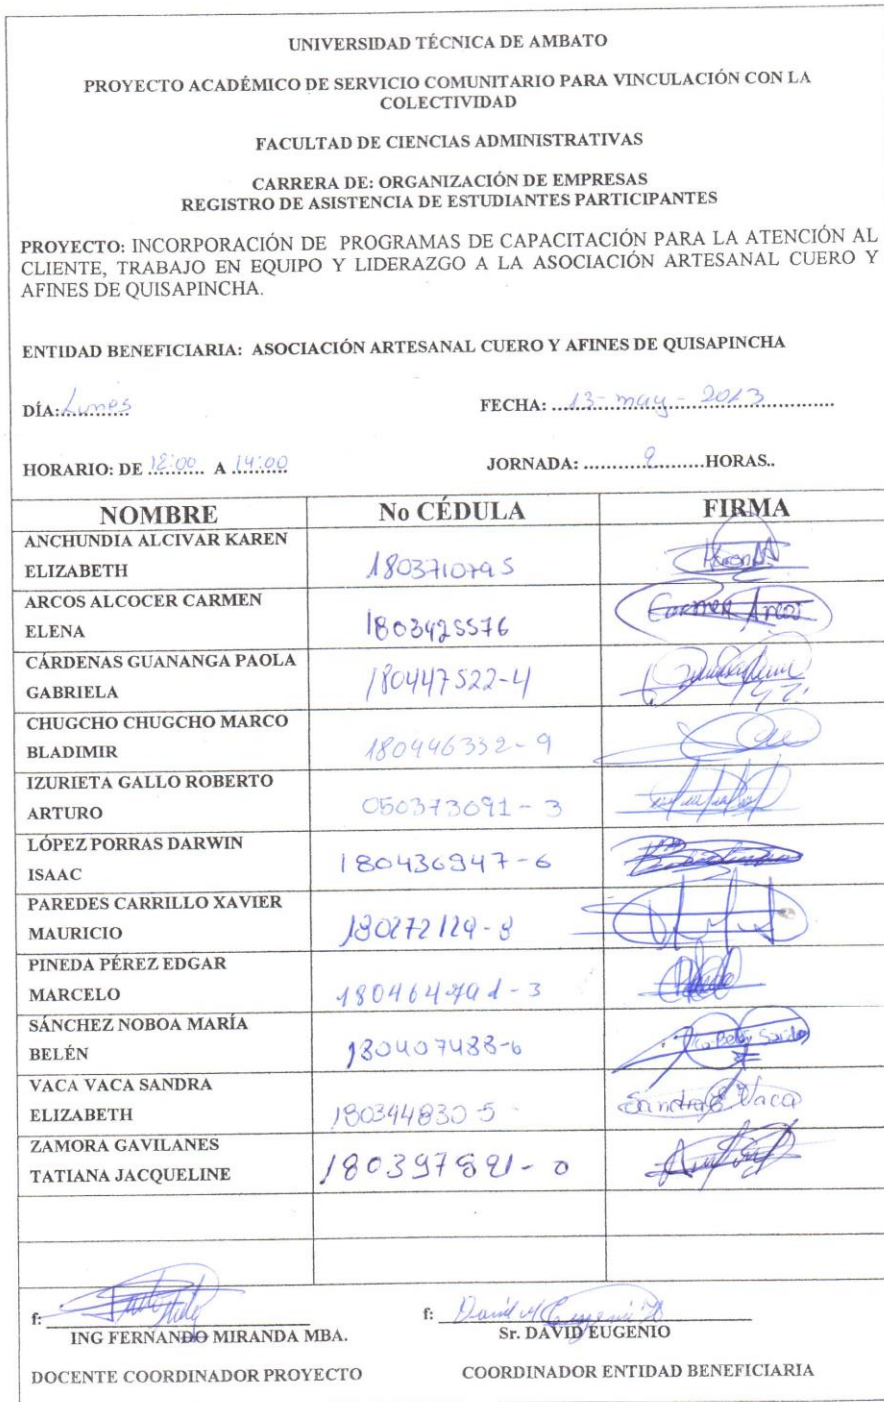 UNIVERSIDAD TÉCNICA DE AMBATO
PROYECTO ACADÉMICO DE SERVICIO COMUNITARIO PARA VINCULACIÓN CON LA
COLECTIVIDAD
FACULTAD DE CIENCIAS ADMINISTRATIVAS
CARRERA DE: ORGANIZACIÓN DE EMPRESAS
REGISTRO DE ASISTENCIA DE ESTUDIANTES PARTICIPANTES
PROYECTO: INCORPORACIÓN DE PROGRAMAS DE CAPACITACIÓN PARA LA ATENCIÓN AL
CLIENTE, TRABAJO EN EQUIPO Y LIDERAZGO A LA ASOCIACIÓN ARTESANAL CUERO Y
AFINES DE QUISAPINCHA.
ENTIDAD BENEFICIARIA: ASOCIACIÓN ARTESANAL CUERO Y AFINES DE QUISAPINCHA
DÍA: Lunes FECHA: 13-may-2013
HORARIO: DE 12:00 A 14:00 JORNADA: 2 HORAS..
NOMBRE No CÉDULA FIRMA
ANCHUNDIA ALCIVAR KAREN
ELIZABETH
ARCOS ALCOCER CARMEN
ELENA 1803425576 Carmen Arcos
CÁRDENAS GUANANGA PAOLA
GABRIELA 180447522-4
CHUGCHO CHUGCHO MARCO
BLADIMIR 180446332-9
IZURIETA GALLO ROBERTO
ARTURO 050373091-3
LÓPEZ PORRAS DARWIN
ISAAC 180436947-6
PAREDES CARRILLO XAVIER
MAURICIO
PINEDA PÉREZ EDGAR
MARCELO
SÁNCHEZ NOBOA MARÍA
BELÉN 180407488-6
VACA VACA SANDRA
ELIZABETH 180394830-5 Sandra E Vaca
ZAMORA GAVILANES
TATIANA JACQUELINE
f: f:
ING FERNANDO MIRANDA MBA. Sr. DAVID EUGENIO
DOCENTE COORDINADOR PROYECTO COORDINADOR ENTIDAD BENEFICIARIA